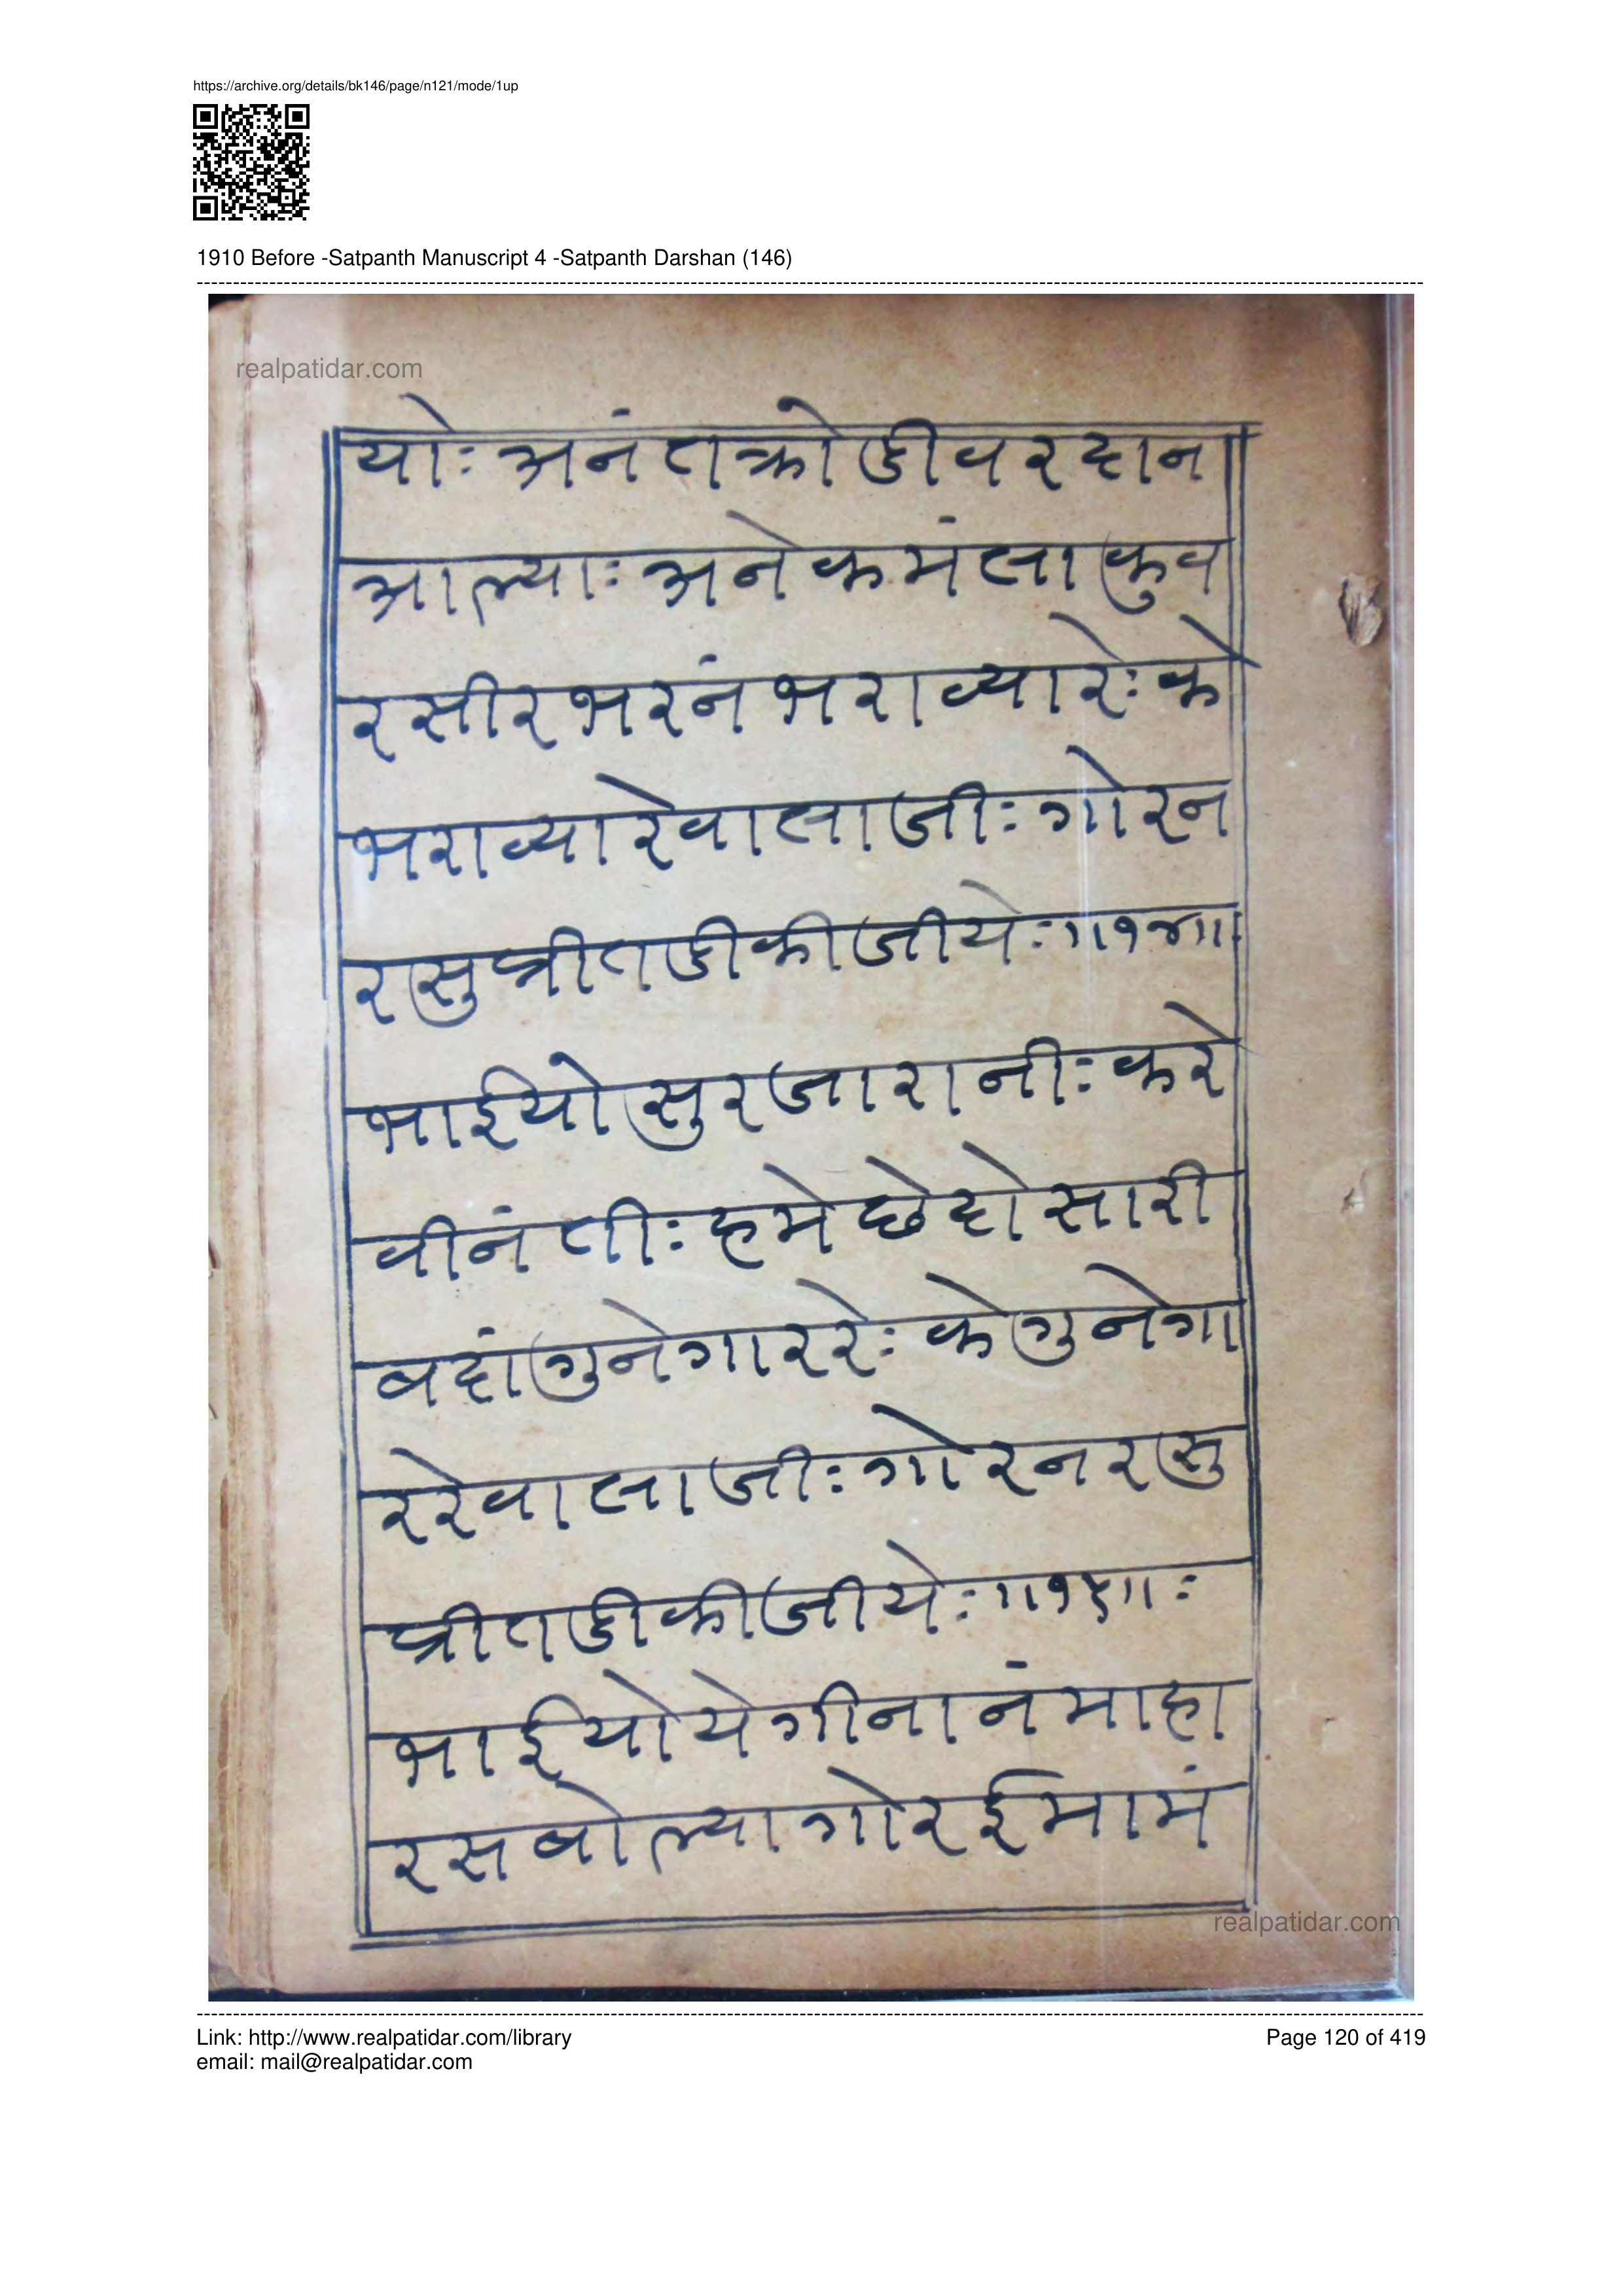 https://archive.org/details/bk146/page/n121/mode/1up
1910 Before -Satpanth Manuscript 4 -Satpanth Darshan (146)
realpatidar.com
योः अनंतक्रोडीवरदान
आल्याः अनेकमंलाकुव
रसीरभरनंभराव्यारेः के
भराव्यारेवालाजीः गोरन
रसुप्रीतडीकीजीयेः ॥१४॥
भाईयोसुरजारानीः करे
वीनंतीः हमेछेदोसारी
बदांगुनेगाररेः केगुनेगा
ररेवालाजीः गोरनरसु
प्रीतडीकीजीयेः ॥१५॥ः
भाईयोयेगीनानंमाहा
रसबोल्यागोरईमामं
realpatidar.com
Link: http://www.realpatidar.com/library
Page 120 of 419
email: mail@realpatidar.com